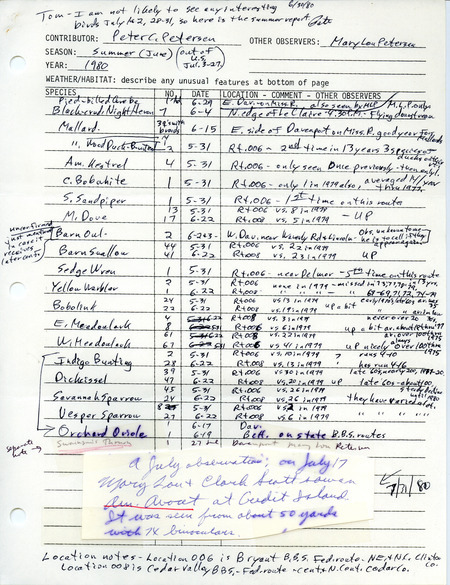 Tom - I am not likely to see any interesting 6/30/80
birds July 1 & 2, 28-31, so here is the summer report Pete
CONTRIBUTOR: Peter C. Petersen OTHER OBSERVERS: Mary Lou Petersen
SEASON: Summer (June) (out of U.S. July 3-27)
YEAR: 1980
WEATHER/HABITAT: describe any unusual features at bottom of page
SPECIES NO. DATE LOCATION - COMMENT - OTHER OBSERVERS
Pied-billed Grebe 6-29 E. Dav. on Miss R. also seen by M.L.P. only
Black-cr. Night Heron 7 6-4 N. edge of LeClaire - 4:30 P.M. - Flying downstream
Mallard 6-15 E. side of Davenport on Miss R. good year for Mallards
" Wood Duck 2 5-31 Rt. 006 - 2nd time in 13 years
Am. Kestrel 4 5-31 Rt. 006 - only seen once previously - then only 1.
C. Bobwhite 1 5-31 Rt. 006 - only 1 in 1979 also, averaged 11/year thru 1977
S. Sandpiper 1 5-31 Rt. 006 - 1st time on this route
M. Dove 13 5-31 Rt. 006 vs. 8 in 1979 - UP
17 6-22 Rt. 008 vs. 5 in 1979
Unconfirmed just noting in case it receives later confir.
Barn Owl 2 6-2&3 W. Dav. near Waverly Rd & Lincoln Obs. unknown to me he is to call if they appear again
Barn Swallow 44 5-31 Rt. 006 vs. 22 in 1979
41 6-22 Rt. 008 vs. 23 in 1979 UP
Sedge Wren 1 5-31 Rt. 006 - near Delmar - 5th time on this route
Yellow Warbler 2 5-31 Rt. 006 none in 1979
1 6-22 Rt. 008 " " "
Bobolink 24 5-31 Rt. 006 vs. 13 in 1979
22 6-22 Rt. 008 vs. 19 in 1979 up a bit
E. Meadowlark Rt. 008 vs. 3 in 1979 never over 20
Rt. 006 vs 6 in 1979 up a bit
W. Meadowlark 61 Rt. 006 vs. 22 in 1979
67 6-22 Rt. 008 vs. 41 in 1979 up nicely
Indigo Bunting 2 5-31 Rt. 006 vs. 10 in 1979 runs 4-10
8 6-22 Rt. 008 vs. 13 in 1979 has run 4-16
Dickcissel 39 5-31 Rt. 006 vs 30 in 1979
47 6-22 Rt. 008 vs. 20 in 1979 up late 60s - about 100
Savannah Sparrow 45 5-31 Rt. 006 vs. 26 in 1979
24 6-22 Rt. 008 vs. 26 in 1979
Vesper Sparrow 8 5-31 Rt. 006 vs 2 in 1979
27 6-22 Rt. 008 vs. 6 in 1979
Orchard Oriole 1 6-17 Dav.
1 6-19 Bett. on state B.B.S. routes
separate note → Swainson's Thrush Davenport Mary Lou Petersen
A July observation; on July 17
Mary Lou & Clark Scott saw an
Am. Avocet at Credit Island
It was seen from about 50 yards
with 7X binoculars.
7/31/80
Location notes - Location 006 is Bryant B.B.S. Fed. route - NE & N.C. Clinton Co.
Location 008 is Cedar Valley B.B.S. - Fed. route - cent & N. Cent. Cedar Co.